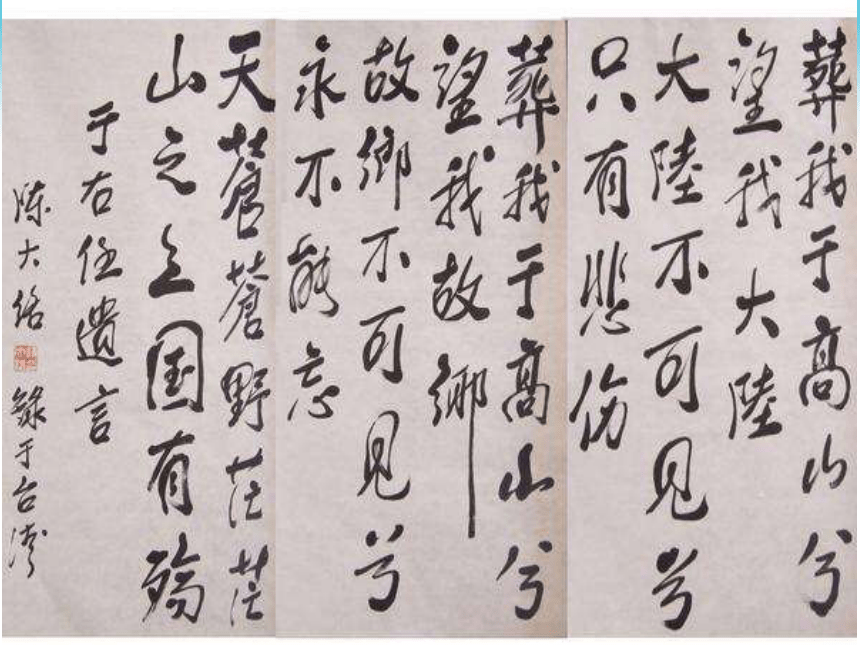 葬我于高山兮
望我大陸
大陸不可見兮
只有悲伤
葬我于高山兮
望我故鄉
故鄉不可見兮
永不能忘
天蒼蒼野茫茫
山之上国有殤
于右任遺言
陈大络 錄于台湾